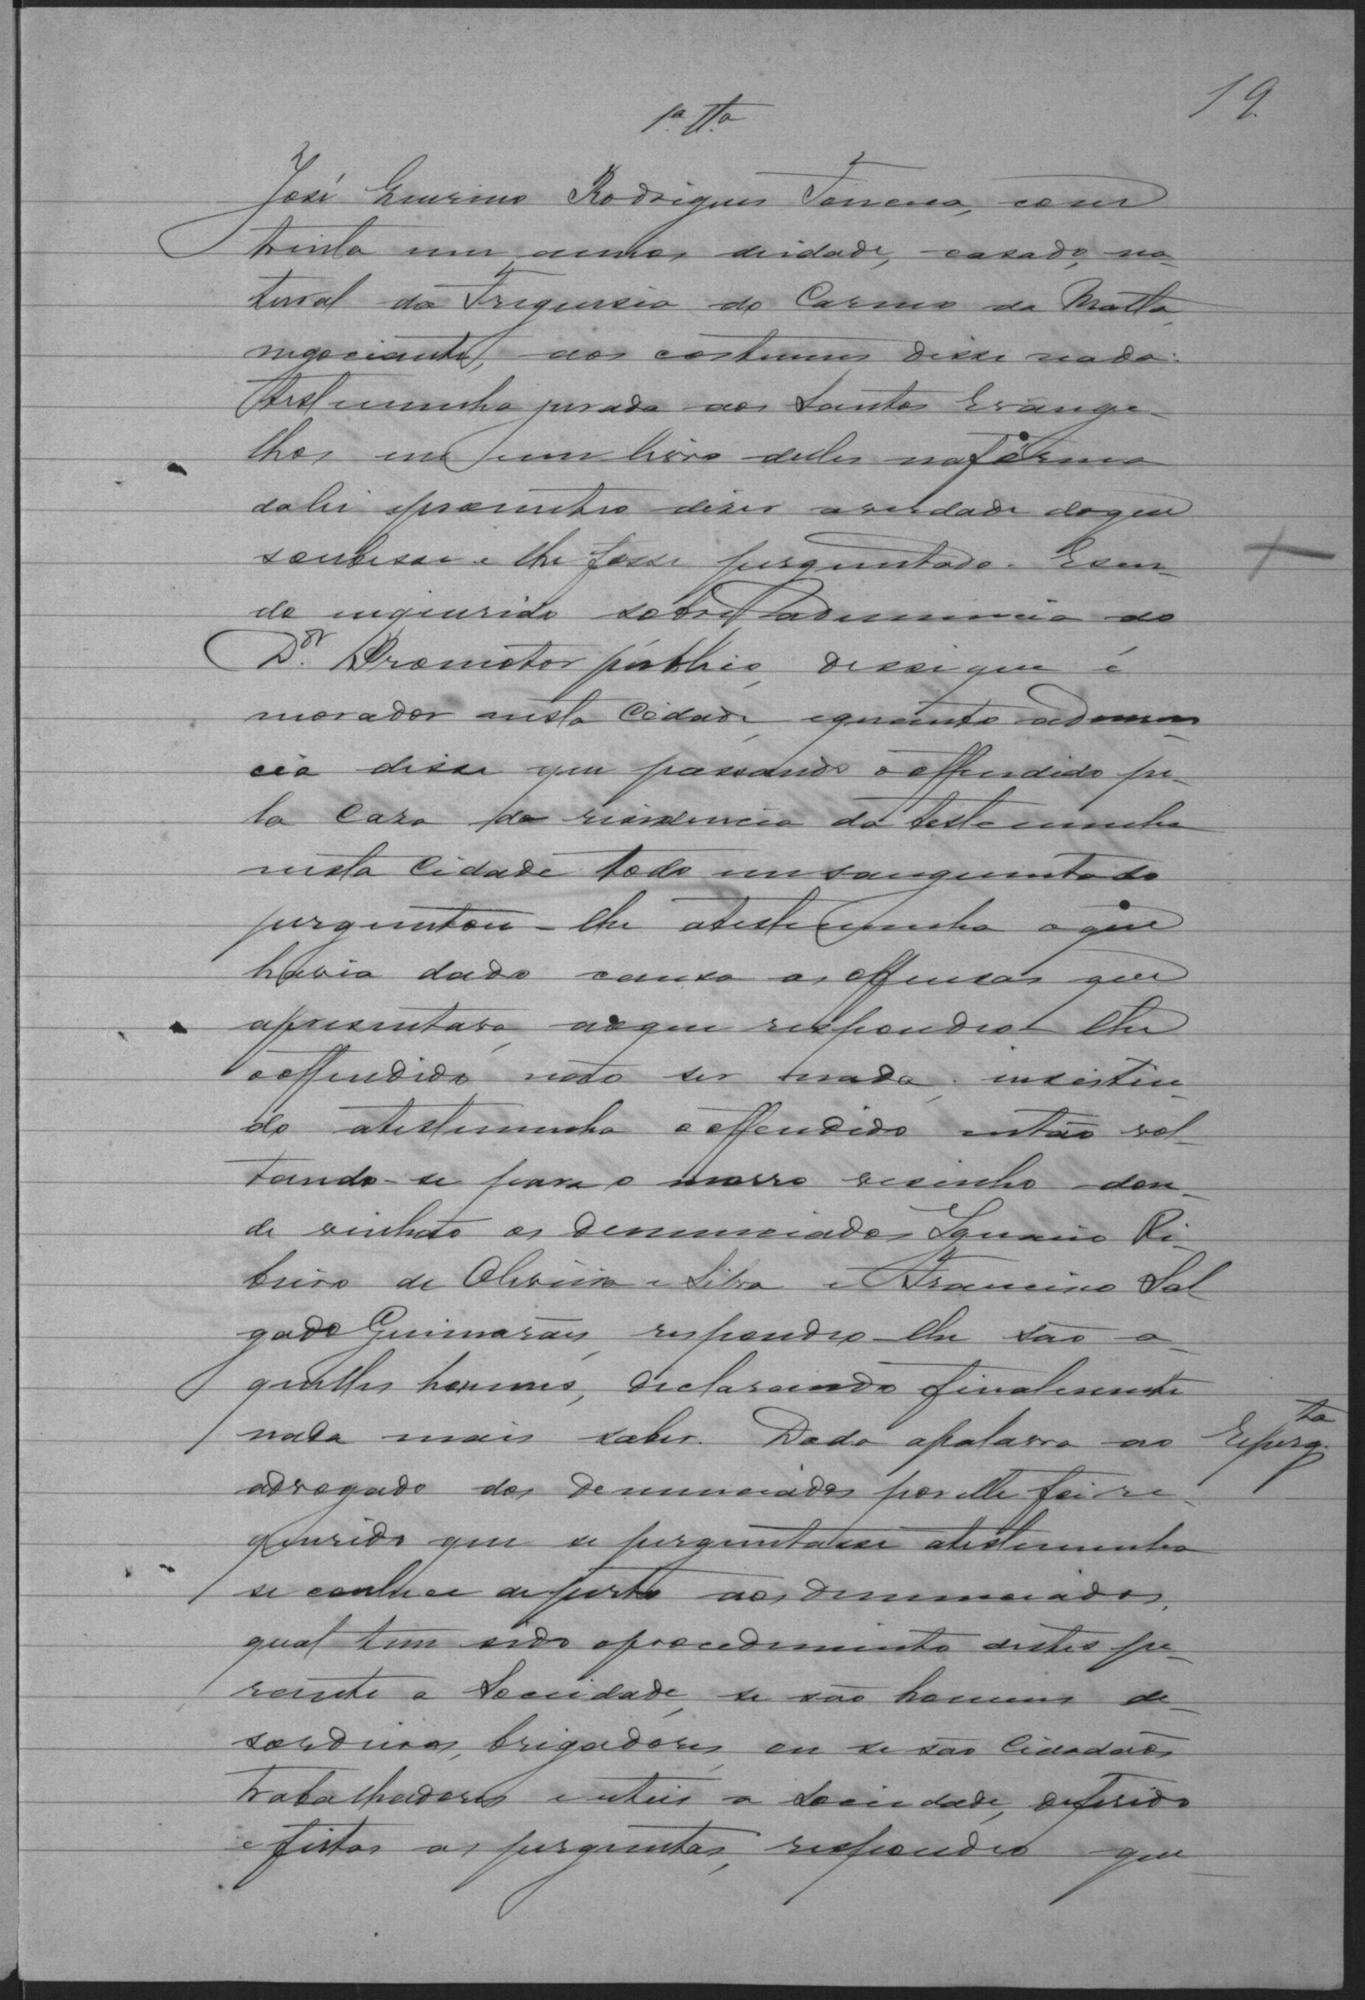 19
1ª ttª
José Guerino Rodrigues Fonceca, com
trinta um annos deidade, casado, na-
tural da Freguesia do Carmo da Matta
negociante, aos costumes disse nada.
Testemunha jurada aos Santos Evange-
lhos em um livro delles na fórma
dalei eprometteo diser averdade doque
soubesse e lhe fosse perguntado. Esen-
do inquirido sobre adenuncia do
Dor. Promotor público, disse que é
morador nesta Cidade, equanto adenun-
cia disse que passando o offendido pe-
la casa da risidencia da testemunha
nesta Cidade todo emsanguentado
perguntou-lhe atestemunha oque
havia dado causa as offensas que
apresentava, aoque respondeo lhe
ooffendido não ser nada, insistin-
do atestemunha o offendido então vol-
tando-se para o morro visinho don-
de vinhão os denunciados Ignacio Ri-
beiro de Oliveira e Silva e Francisco Sal-
gado Guimarães, respondeo-lhe são a-
quelles homens, declarando finalmente
nada mais saber. Dada apalavra ao
Reperg.ta
advogado dos denunciados por elle foi re-
querido que se perguntasse atestemunha
se conhece de perto aos denunciados,
qual tem sido oprocedimento destes pe-
rante a Sociedade, se são homens de-
sordeiros, brigadores, ou se são Cidadãos
trabalhadores e uteis a Sociedade, deferido
e feitas as perguntas, respondeo que